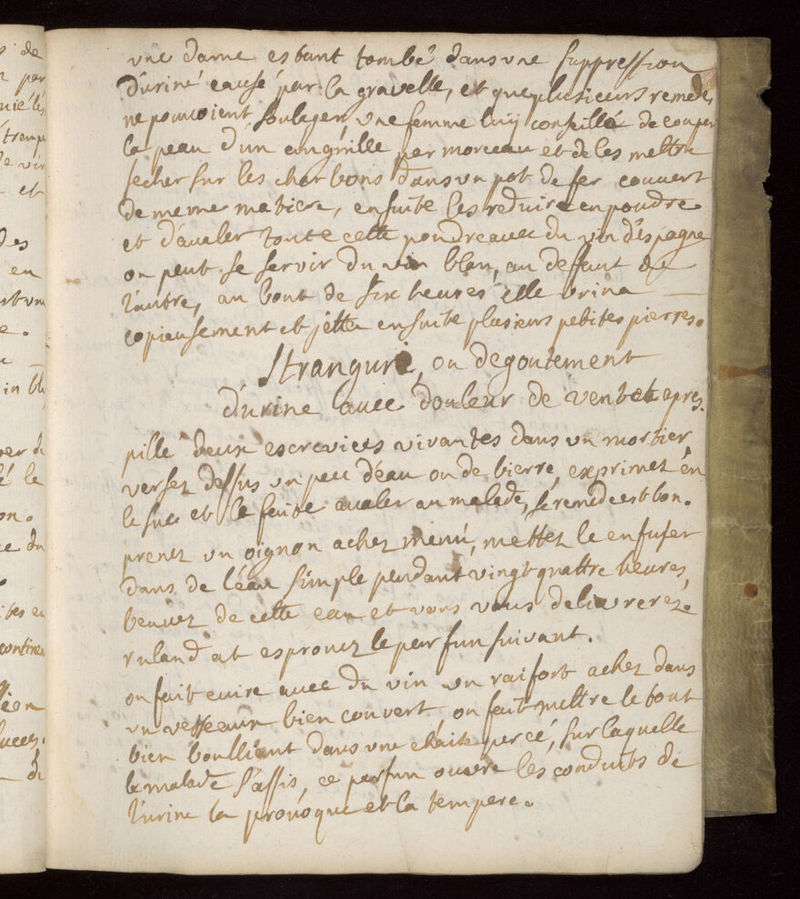 une dame estant tombé dans une suppression
d'uriné causé par la gravelle, et que plusieurs remedes
ne pouvoient soulager une femme luy conseilla de couper
la peau d'un anguille par morceau et de les mettre
secher sur les charbons dans un pot de fer couvert
de meme matiere, ensuite les reduire en poudre
et d'avaler toute cette poudre avec du vin d'espagne
on peut se servir du vin blan, au deffaut de
l'autre, au bout de six heures elle urina
copieusement et jetta ensuite plusieurs petites pierres.
Strangurie, ou degoutement
d'urine avec douleur de ventre
pillé deux escrevices vivantes dans un mortier
versez dessus un peu d'eau ou de bierre, exprimez en
le suc et le faite avaler au malade, le remede est bon.
prenez un oignon achez menu, mettez le enfuser
dans de l'eau simple pendant vingt quattre heures,
beuvez de cette eau et vous vous delivrerez.
ruland at esprouvez le parfun suivant.
on fait cuire avec du vin un raifort achez dans
un vesseaux bien couvert on fait mettre le tout
bien boulliant dans une chaise percé, sur laquelle
le malade s'assis, ce parfun ouvre les conduits de
l'urine la provoque et la tempere.
de
par
vin
et
des
en
e.
in bl
le
on.
ce du
ites en
continu
de